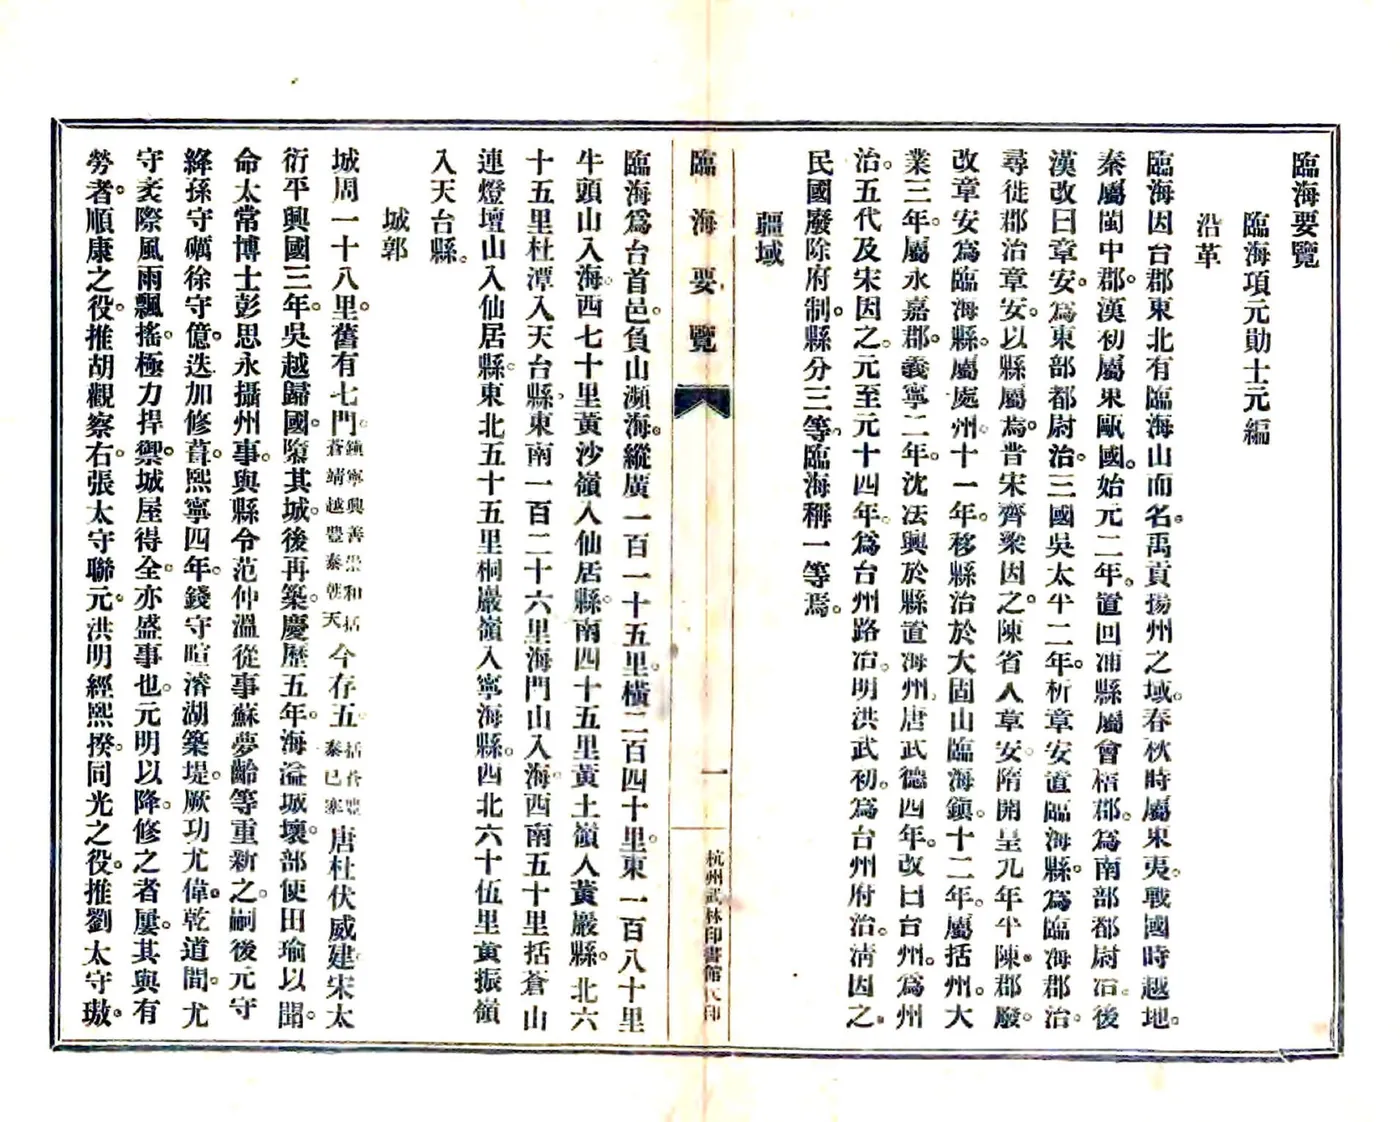 臨海要覽
臨海項元勛士元編
沿革
臨海因台郡東北有臨海山而名。禹貢揚州之域。春秋時屬東夷。戰國時越地。
秦屬閩中郡。漢初屬東甌國。始元二年。置回浦縣屬會稽郡。爲南部都尉治。後
漢改曰章安。爲東部都尉治。三國吳太平二年。析章安置臨海縣。爲臨海郡治。
尋徙郡治章安。以縣屬焉。晋宋齊梁因之。陳省入章安。隋開皇九年平陳。郡廢。
改章安爲臨海縣。屬處州。十一年。移縣治於大固山臨海鎮。十二年。屬括州。大
業三年。屬永嘉郡。義寧二年。沈法興於縣置海州。唐武德四年。改曰台州。爲州
治。五代及宋因之。元至元十四年。爲台州路治。明洪武初。爲台州府治。清因之。
民國廢除府制。縣分三等。臨海稱一等焉。
疆域
臨海要覽
一
杭州武林印書館代印
臨海爲台首邑。負山瀕海。縱廣一百一十五里。橫二百四十里。東一百八十里
牛頭山入海。西七十里黃沙嶺入仙居縣。南四十五里黃土嶺入黃巖縣。北六
十五里杜潭入天台縣。東南一百二十六里海門山入海。西南五十里括蒼山
連燈壇山入仙居縣。東北五十五里桐巖嶺入寧海縣。西北六十伍里黃振嶺
入天台縣。
城郭
城周一十八里。舊有七門。鎮寧興善崇和括蒼靖越豐泰朝天今存五。括蒼豐泰已塞唐杜伏威建。宋太
衍平興國三年。吳越歸國。隳其城。後再築。慶歷五年。海溢城壞。部使田瑜以聞。
命太常博士彭思永攝州事。與縣令范仲溫從事蘇夢齡等重新之。嗣後元守
絳孫守礪徐守億。迭加修葺。熙寧四年。錢守暄濬湖築堤。厥功尤偉。乾道間。尤
守袤際風雨飄搖。極力捍禦。城屋得全。亦盛事也。元明以降。修之者屢。其與有
勞者。順康之役。推胡觀察右。張太守聯元。洪明經熙揆。同光之役。推劉太守璈。